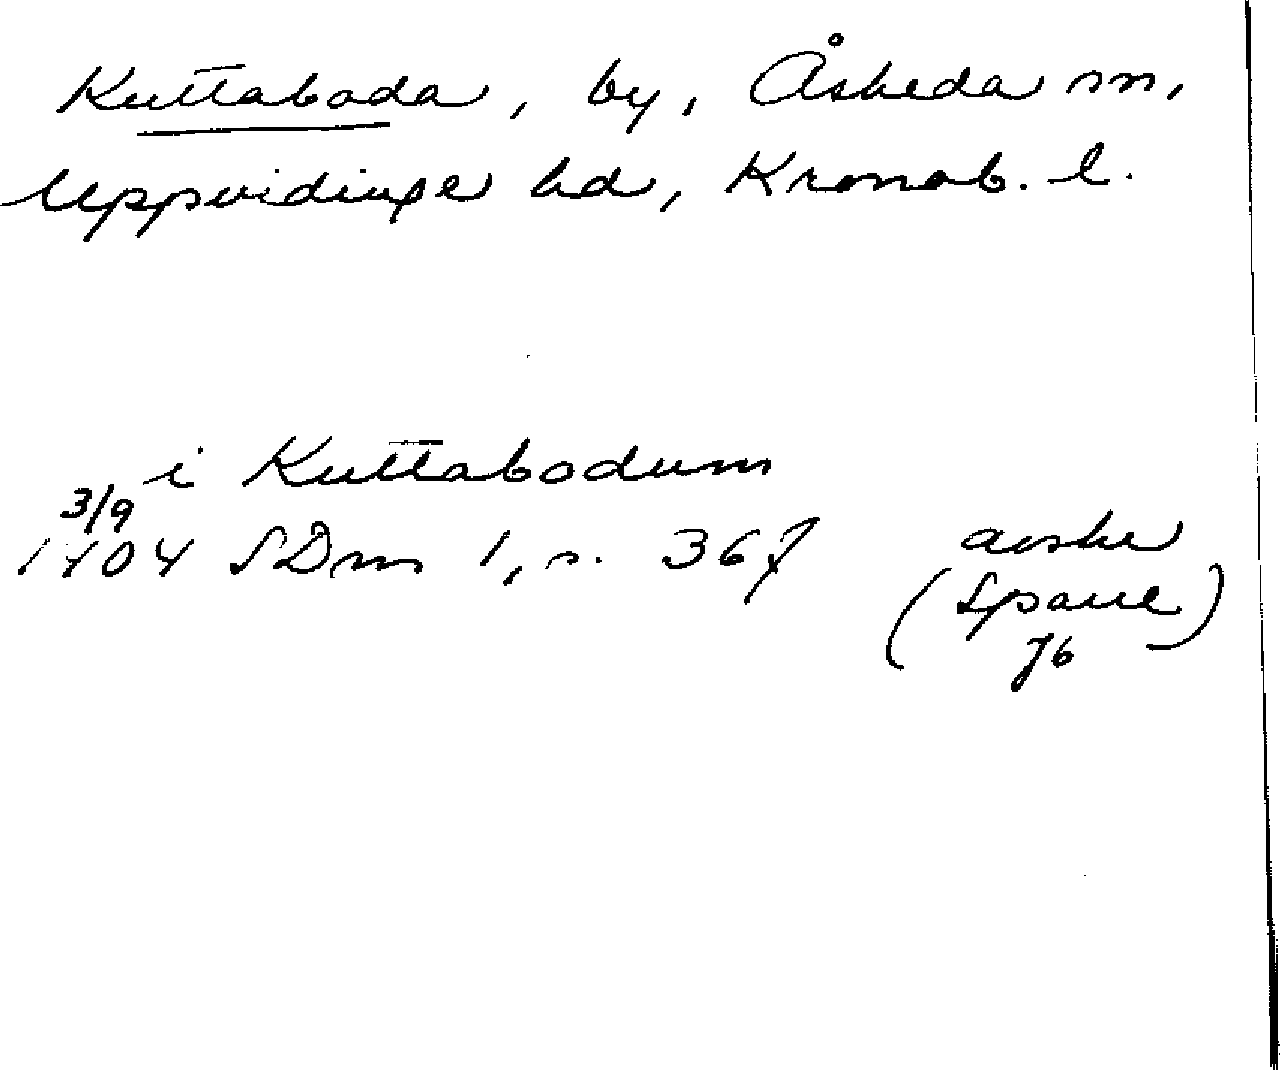 Kuttaboda, by, Åsheda sn,
Uppvidinge hd, Kronob. l.
i Kuttabodum
3/9
1404 SDns 1, s. 367
avskr
(Spaue)
76